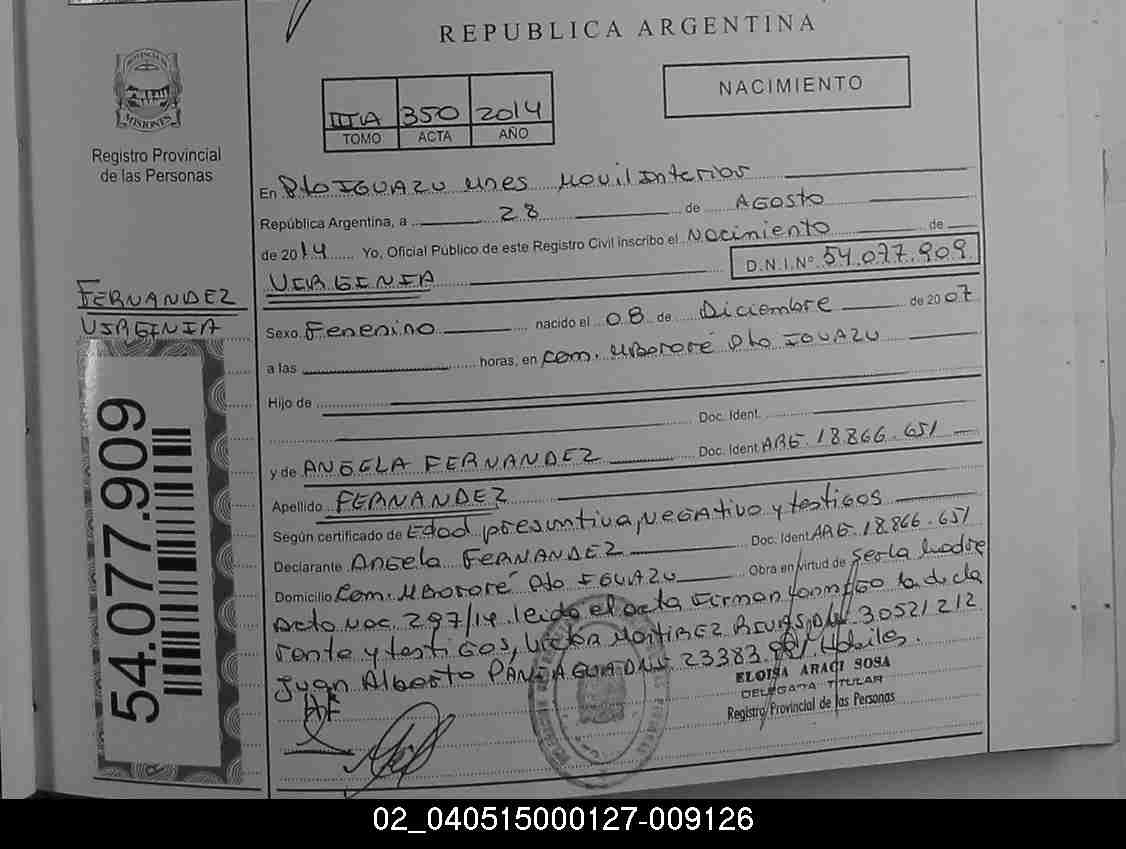 REPUBLICA ARGENTINA
PROVINCIA DE
MISIONES
Registro Provincial
de las Personas
IIIA 350 2014
TOMO ACTA AÑO
NACIMIENTO
En Pto IGUAZU Mnes Movil Interior
República Argentina, a 28 de AGosto
de 2014 Yo, Oficial Público de este Registro Civil inscribo el Nacimiento de
VIRGINIA D.N.I.Nº 54.077.909
FERNANDEZ
VIRGINIA
Sexo Femenino nacido el 08 de Diciembre de 2007
a las horas, en Com. MBororé Pto IGUAZU
Hijo de
Doc. Ident.
y de ANGELA FERNANDEZ Doc. Ident ARG. 18.866.651
Apellido FERNANDEZ
Según certificado de Edad presuntiva, NEGAtivo y testigos
Declarante Angela FERNANDEZ Doc. Ident ARG. 18.866.651
Domicilio Com. MBororé Pto IGUAZU Obra en virtud de Ser la Madre
Acta Nac. 297/14. leido el acta Firman conmigo la decla
rante y testigos, MARTINEZ DNI 30521212
Juan Alberto PANIAGUA DNI 23383
54.077.909
ELOISA ARACI SOSA
DELEGADA TITULAR
Registro Provincial de las Personas
AF
02_040515000127-009126